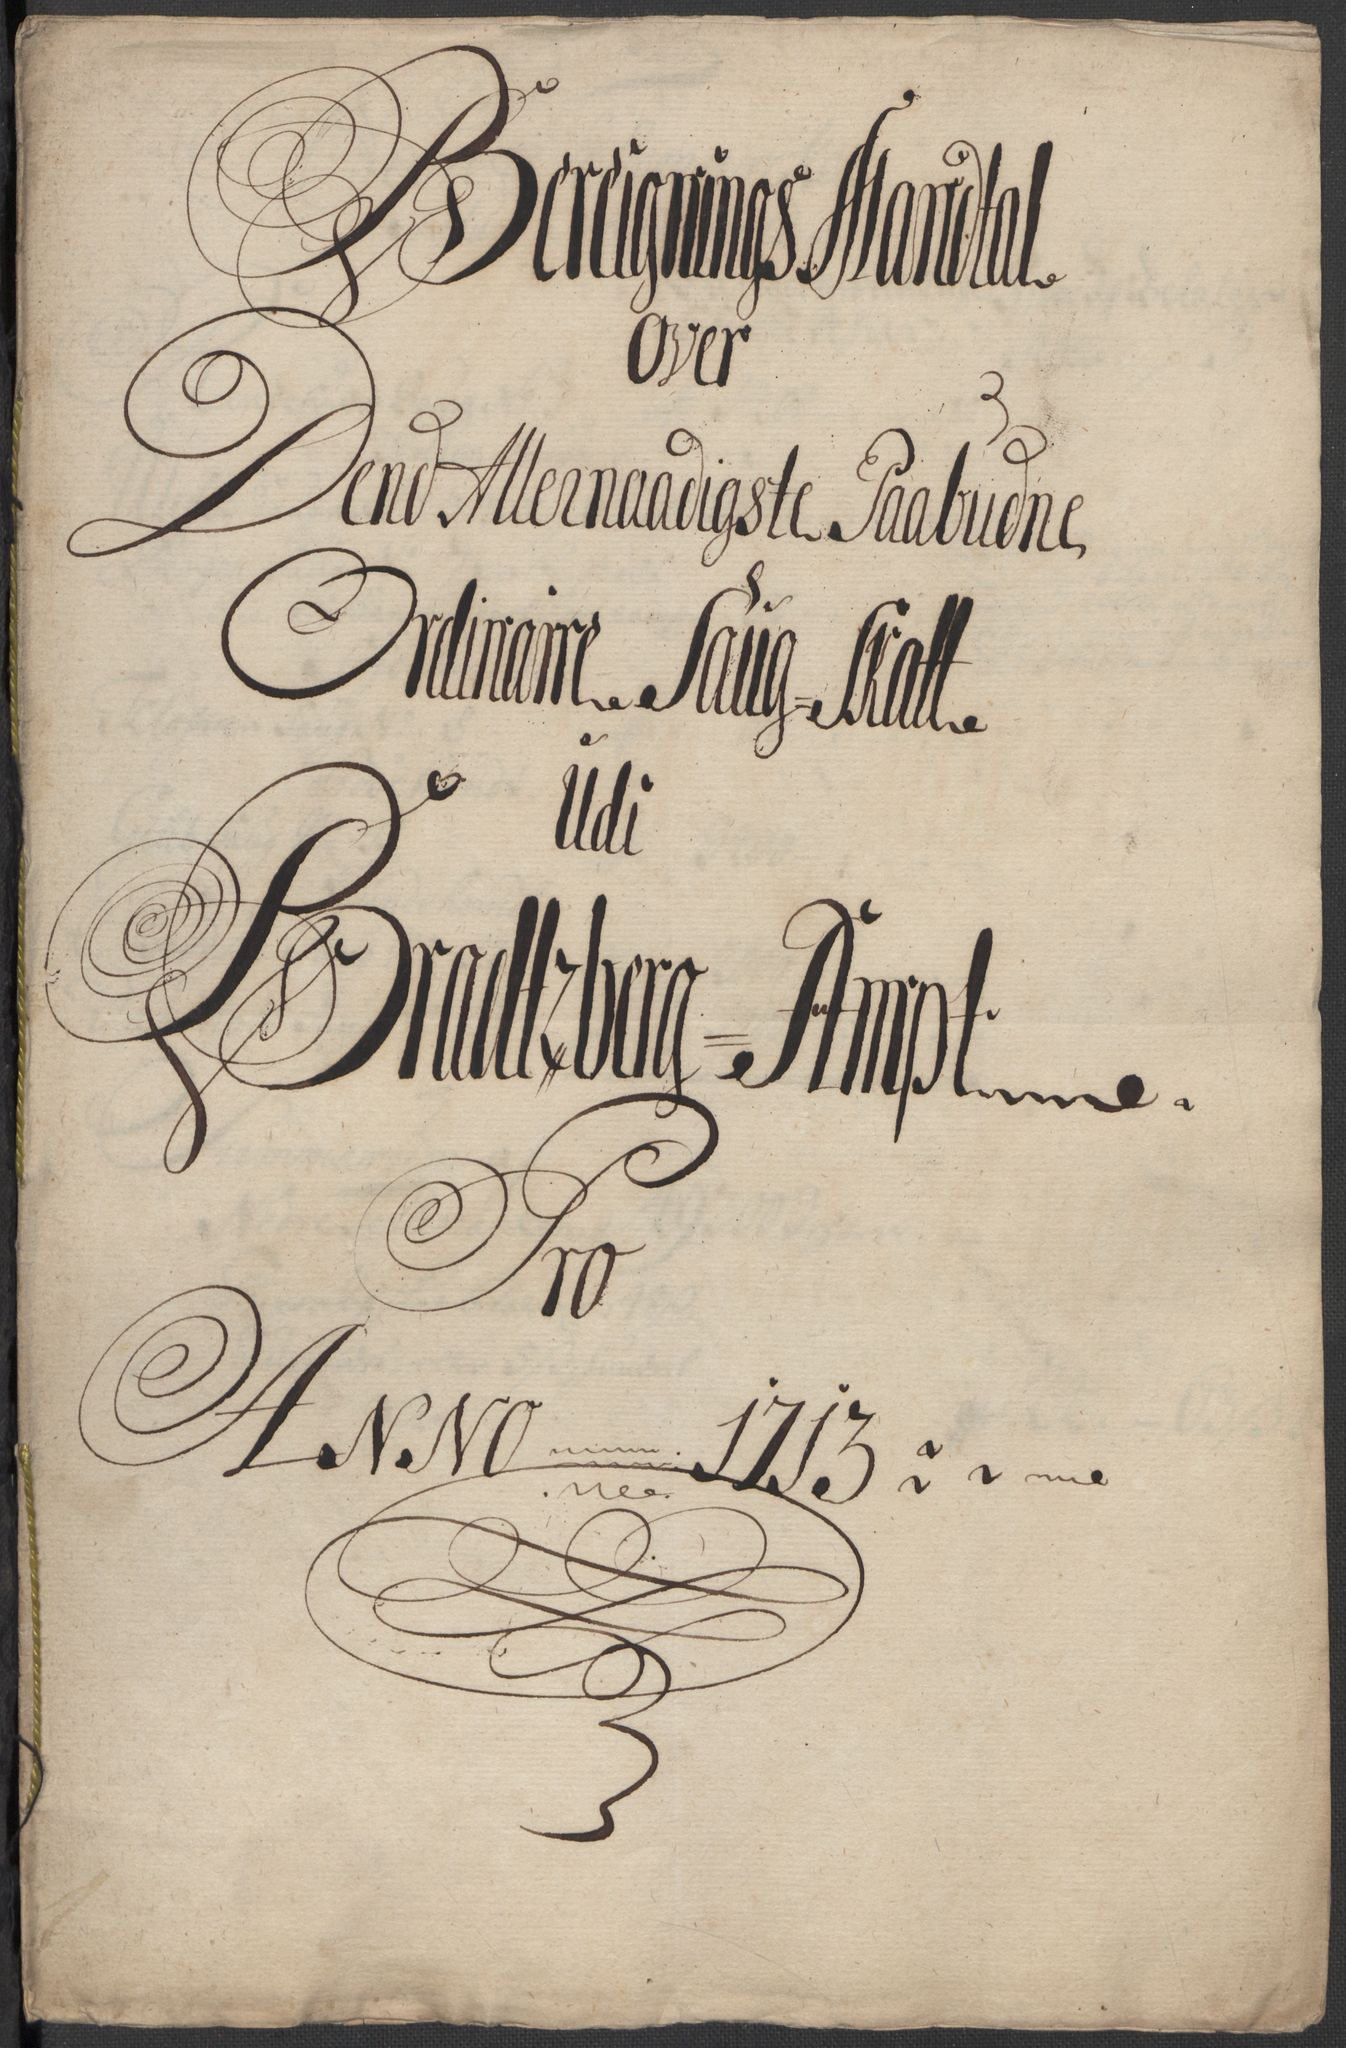 Bereignings Mandtal
Over
Dend Allernaadigste Paabudne
Ordinaire Saug=Skatt
Udi
Bradtzberg=Ampt
Pro
ANNO 1713